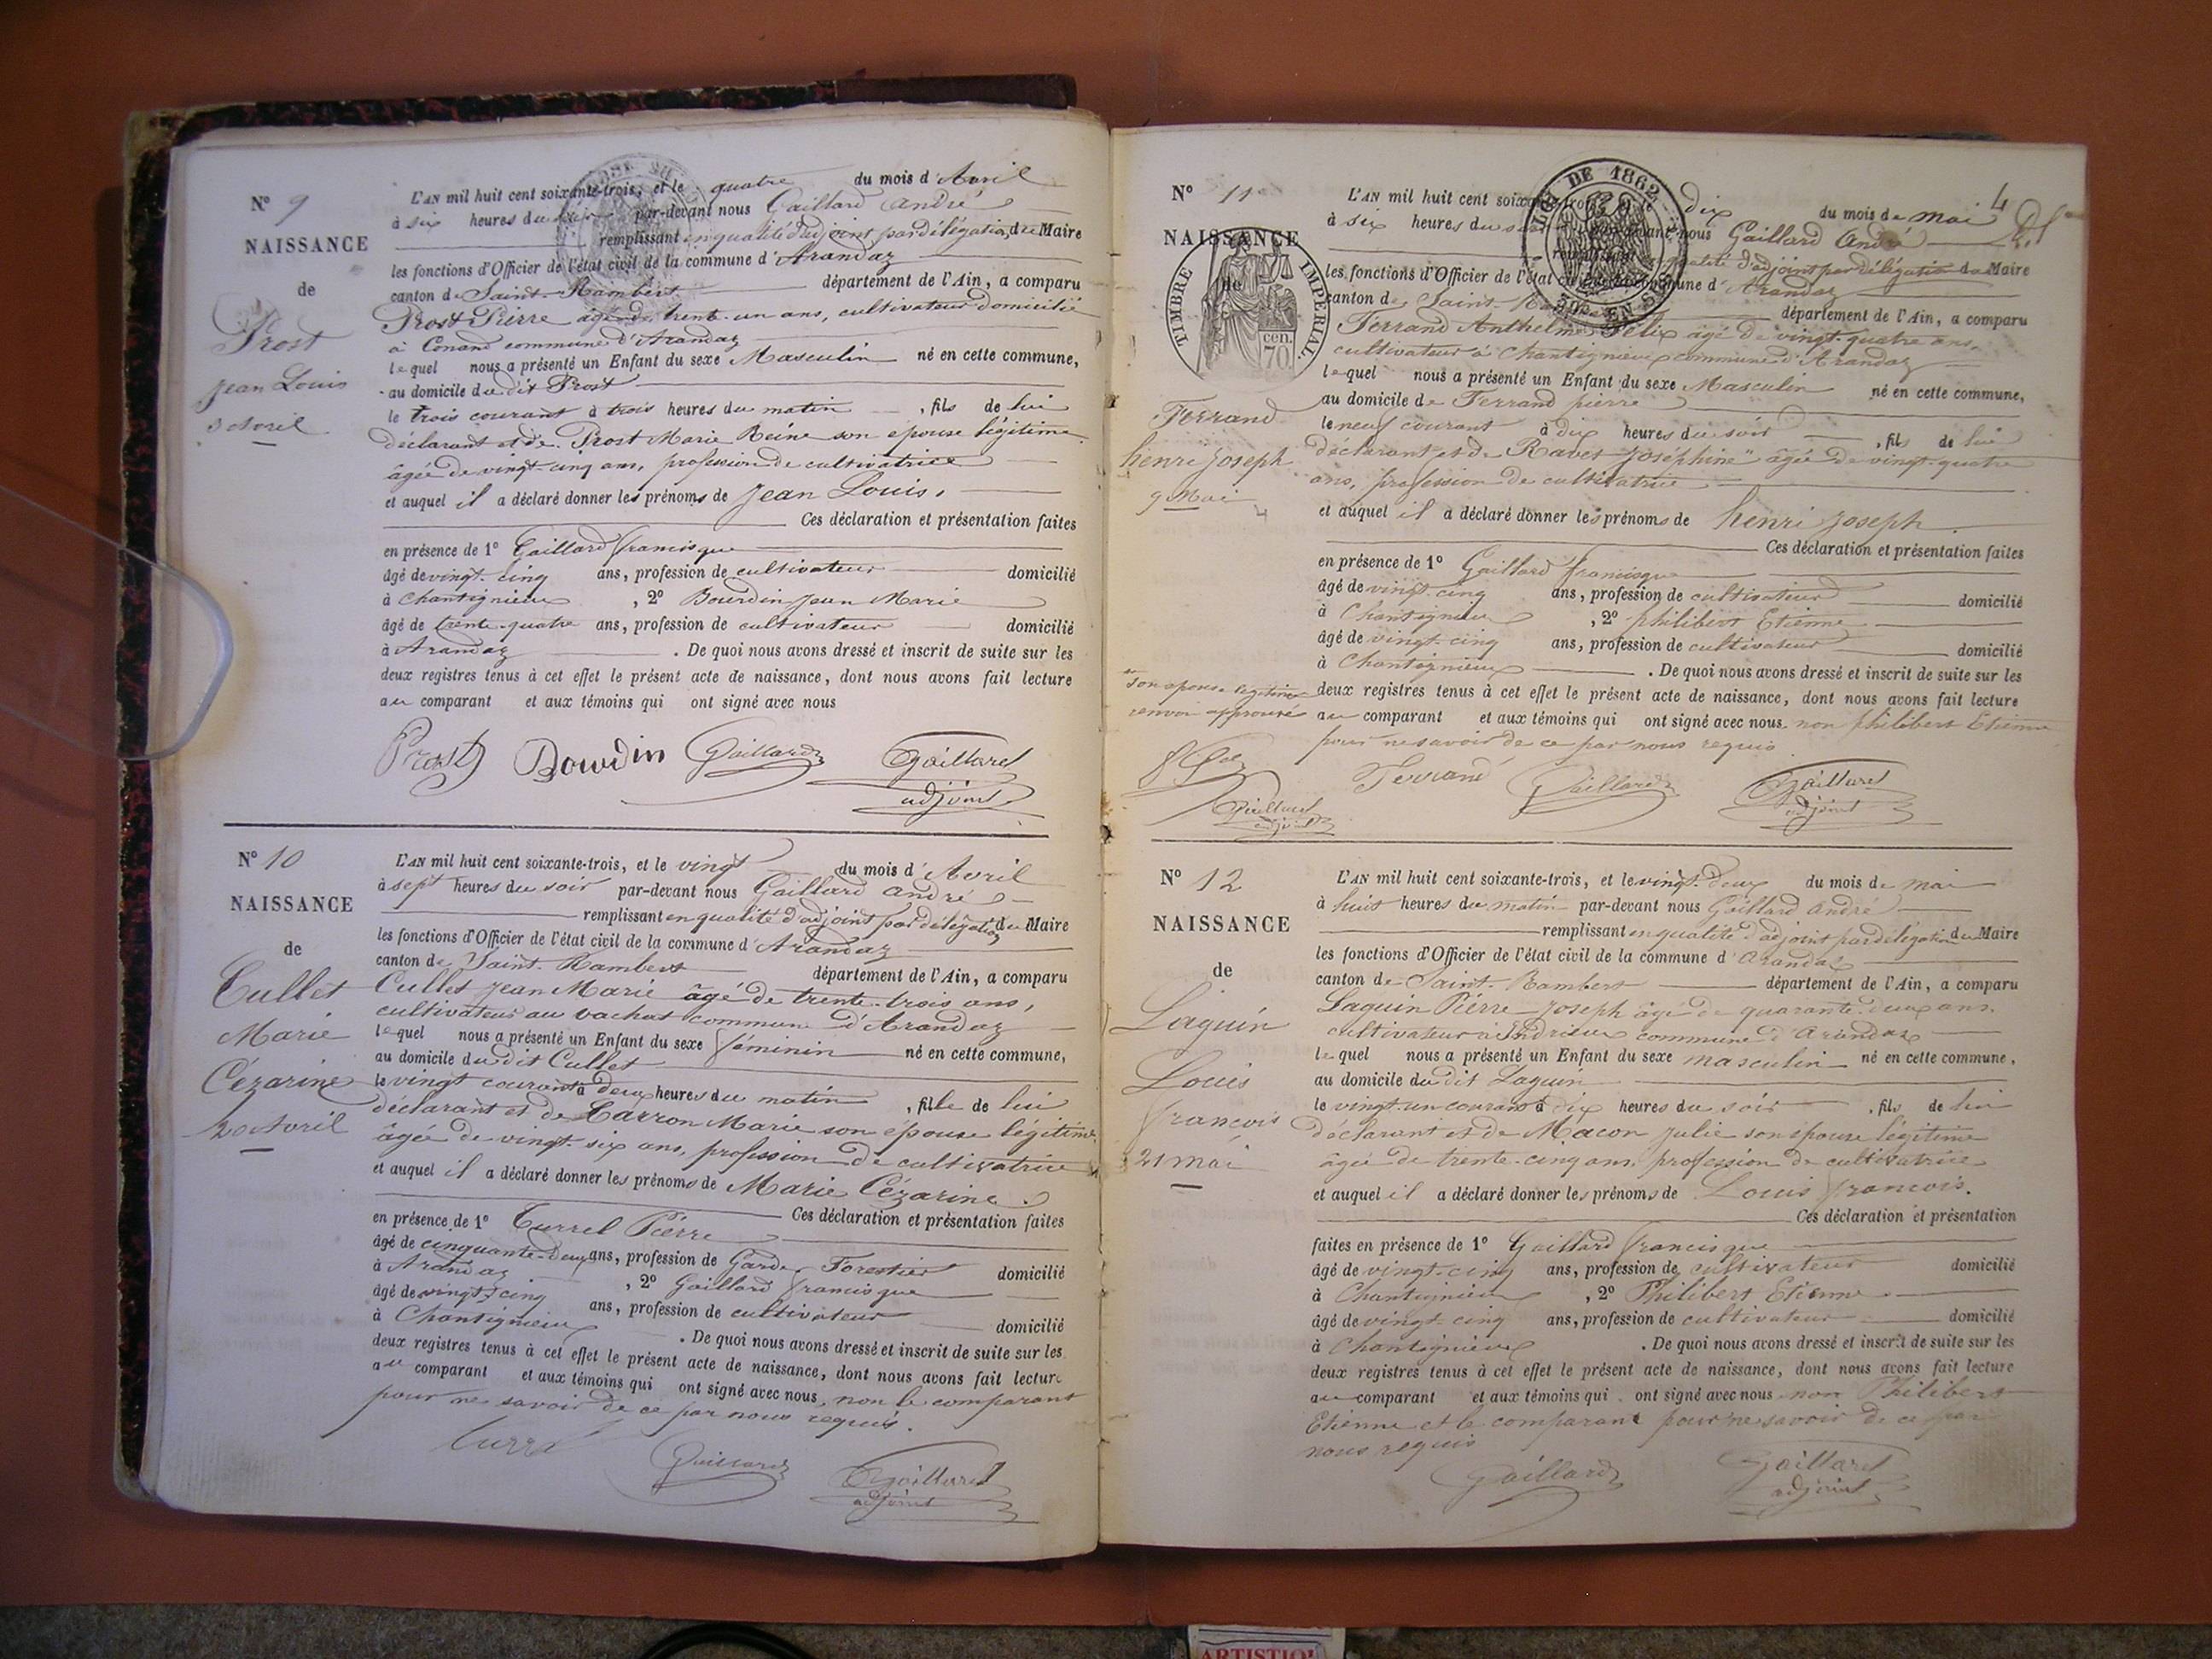 N° 9
NAISSANCE
de
Prost
Jean Louis
3 Avril
L'AN mil huit cent soixante-trois, et le quatre du mois d'Avril
à six heures du soir par-devant nous Gaillard André
remplissant en qualité d'adjoint par délégation du Maire
les fonctions d'Officier de l'état civil de la commune d'Arandaz
canton de Saint-Rambert département de l'Ain, a comparu
Prost Pierre âgé de trente-un ans, cultivateur domicilié
à Conand commune d'Arandaz
lequel nous a présenté un Enfant du sexe Masculin né en cette commune,
au domicile du dit Prost
le trois courant à trois heures du matin, fils de lui
déclarant et de Prost Marie Reine son épouse légitime
âgée de vingt cinq ans, profession de cultivatrice
et auquel il a déclaré donner les prénoms de Jean Louis.
Ces déclaration et présentation faites
en présence de 1° Gaillard francisque
âgé de vingt-cinq ans, profession de cultivateur domicilié
à Chantignieux, 2° Bourdin Jean Marie
âgé de trente-quatre ans, profession de cultivateur domicilié
à Arandaz. De quoi nous avons dressé et inscrit de suite sur les
deux registres tenus à cet effet le présent acte de naissance, dont nous avons fait lecture
au comparant et aux témoins qui ont signé avec nous
Prost Bourdin Gaillard Gaillard
adjoint
N° 10
NAISSANCE
de
Cullet
Marie
Cézarine
20 Avril
L'AN mil huit cent soixante-trois, et le vingt du mois d'Avril
à sept heures du soir par-devant nous Gaillard André
remplissant en qualité d'adjoint par délégation du Maire
les fonctions d'Officier de l'état civil de la commune d'Arandaz
canton de Saint-Rambert département de l'Ain, a comparu
Cullet Jean Marie âgé de trente-trois ans,
cultivateur au vachat commune d'Arandaz
lequel nous a présenté un Enfant du sexe féminin né en cette commune,
au domicile du dit Cullet
le vingt courant à deux heures du matin, fille de lui
déclarant et de Carron Marie son épouse légitime
âgée de vingt-six ans, profession de cultivatrice
et auquel il a déclaré donner les prénoms de Marie Cézarine.
Ces déclaration et présentation faites
en présence de 1° Currel Pierre
âgé de cinquante-deux ans, profession de Garde Forestier domicilié
à Arandaz, 2° Gaillard francisque
âgé de vingt-cinq ans, profession de cultivateur domicilié
à Chantignieux. De quoi nous avons dressé et inscrit de suite sur les
deux registres tenus à cet effet le présent acte de naissance, dont nous avons fait lecture
au comparant et aux témoins qui ont signé avec nous, non le comparant
pour ne savoir de ce par nous requis.
Gaillard Gaillard
adjoint
4
N° 11
NAISSANCE
de
TIMBRE IMPERIAL.
cen.
70
DE 1862
EN SUS
Ferrand
henri Joseph
9 Mai
L'AN mil huit cent soixante-trois dix du mois de mai
à six heures du soir par-devant nous Gaillard André
remplissant en qualité d'adjoint par délégation du Maire
les fonctions d'Officier de l'état civil de la commune d'Arandaz
canton de Saint-Rambert département de l'Ain, a comparu
Ferrand Anthelme Félix âgé de vingt-quatre ans,
cultivateur à Chantignieux commune d'Arandaz
lequel nous a présenté un Enfant du sexe Masculin né en cette commune,
au domicile de Ferrand pierre
le neuf courant à dix heures du soir, fils de lui
déclarant et de Ravet Joséphine" âgée de vingt-quatre
ans, profession de cultivatrice
et auquel il a déclaré donner les prénoms de henri Joseph
Ces déclaration et présentation faites
en présence de 1° Gaillard francisque
âgé de vingt-cinq ans, profession de cultivateur domicilié
à Chantignieux, 2° philibert Etienne
âgé de vingt-cinq ans, profession de cultivateur domicilié
à Chantignieux. De quoi nous avons dressé et inscrit de suite sur les
deux registres tenus à cet effet le présent acte de naissance, dont nous avons fait lecture
au comparant et aux témoins qui ont signé avec nous. non philibert Etienne
pour ne savoir de ce par nous requis
" son épouse légitime
renvoi approuvé
Gaillard
adjoint
Ferrand Gaillard Gaillard
adjoint
N° 12
NAISSANCE
de
Laguin
Louis
françois
21 mai
L'AN mil huit cent soixante-trois, et le vingt-deux du mois de mai
à huit heures du matin par-devant nous Gaillard André
remplissant en qualité d'adjoint par délégation du Maire
les fonctions d'Officier de l'état civil de la commune d'Arandaz
canton de Saint-Rambert département de l'Ain, a comparu
Laguin Pierre Joseph âgé de quarante-deux ans.
cultivateur à Indrieux commune d'Arandaz
lequel nous a présenté un Enfant du sexe masculin né en cette commune,
au domicile du dit Laguin
le vingt-un courant à dix heures du soir, fils de lui
déclarant et de Macon Julie son épouse légitime
âgée de trente-cinq ans. profession de cultivatrice
et auquel il a déclaré donner les prénoms de Louis françois.
Ces déclaration et présentation
faites en présence de 1° Gaillard francisque
âgé de vingt-cinq ans, profession de cultivateur domicilié
à Chantignieux, 2° Philibert Etienne
âgé de vingt-cinq ans, profession de cultivateur domicilié
à Chantignieux. De quoi nous avons dressé et inscrit de suite sur les
deux registres tenus à cet effet le présent acte de naissance, dont nous avons fait lecture
au comparant et aux témoins qui ont signé avec nous non Philibert
Etienne et le comparant pour ne savoir de ce par
nous requis
Gaillard Gaillard
adjoint